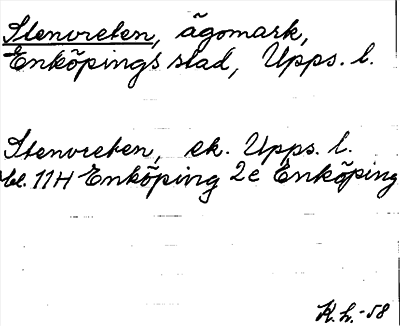 Stenvreten, ägomark,
Enköpings stad, Upps. l.
Stenvreten, ek. Upps. l.
bl. 11H Enköping 2e Enköping
K.h.-58